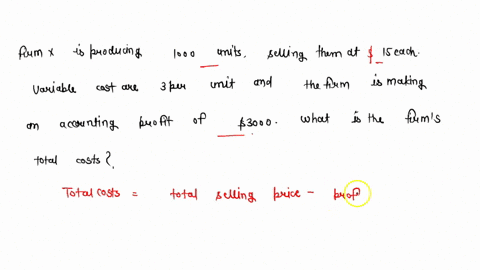 firm x is producing 1000 units, selling them at $ 15 each.
Variable cost are 3 per unit and the firm is making
an accounting profit of $3000. what is the firm's
total costs?
Total costs = total selling price - prof